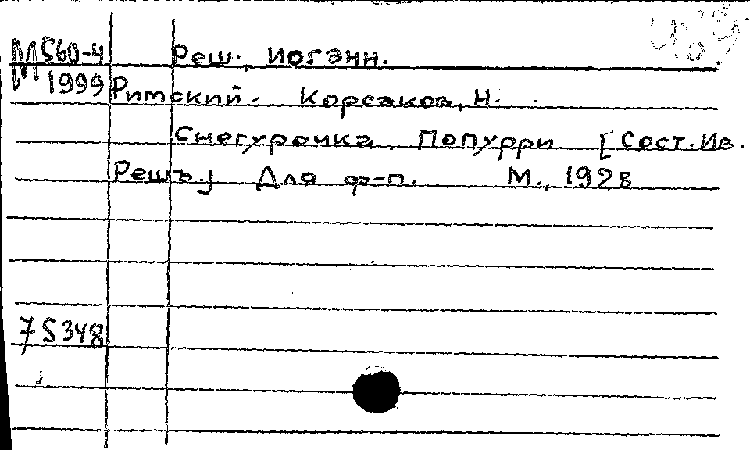 М560-4 Реш., Иоганн.
1999 Римский-Корсаков, Н.
Снегурочка. Попурри [Сост. Ив.
Решъ] Для ф-п. М., 1928
75348